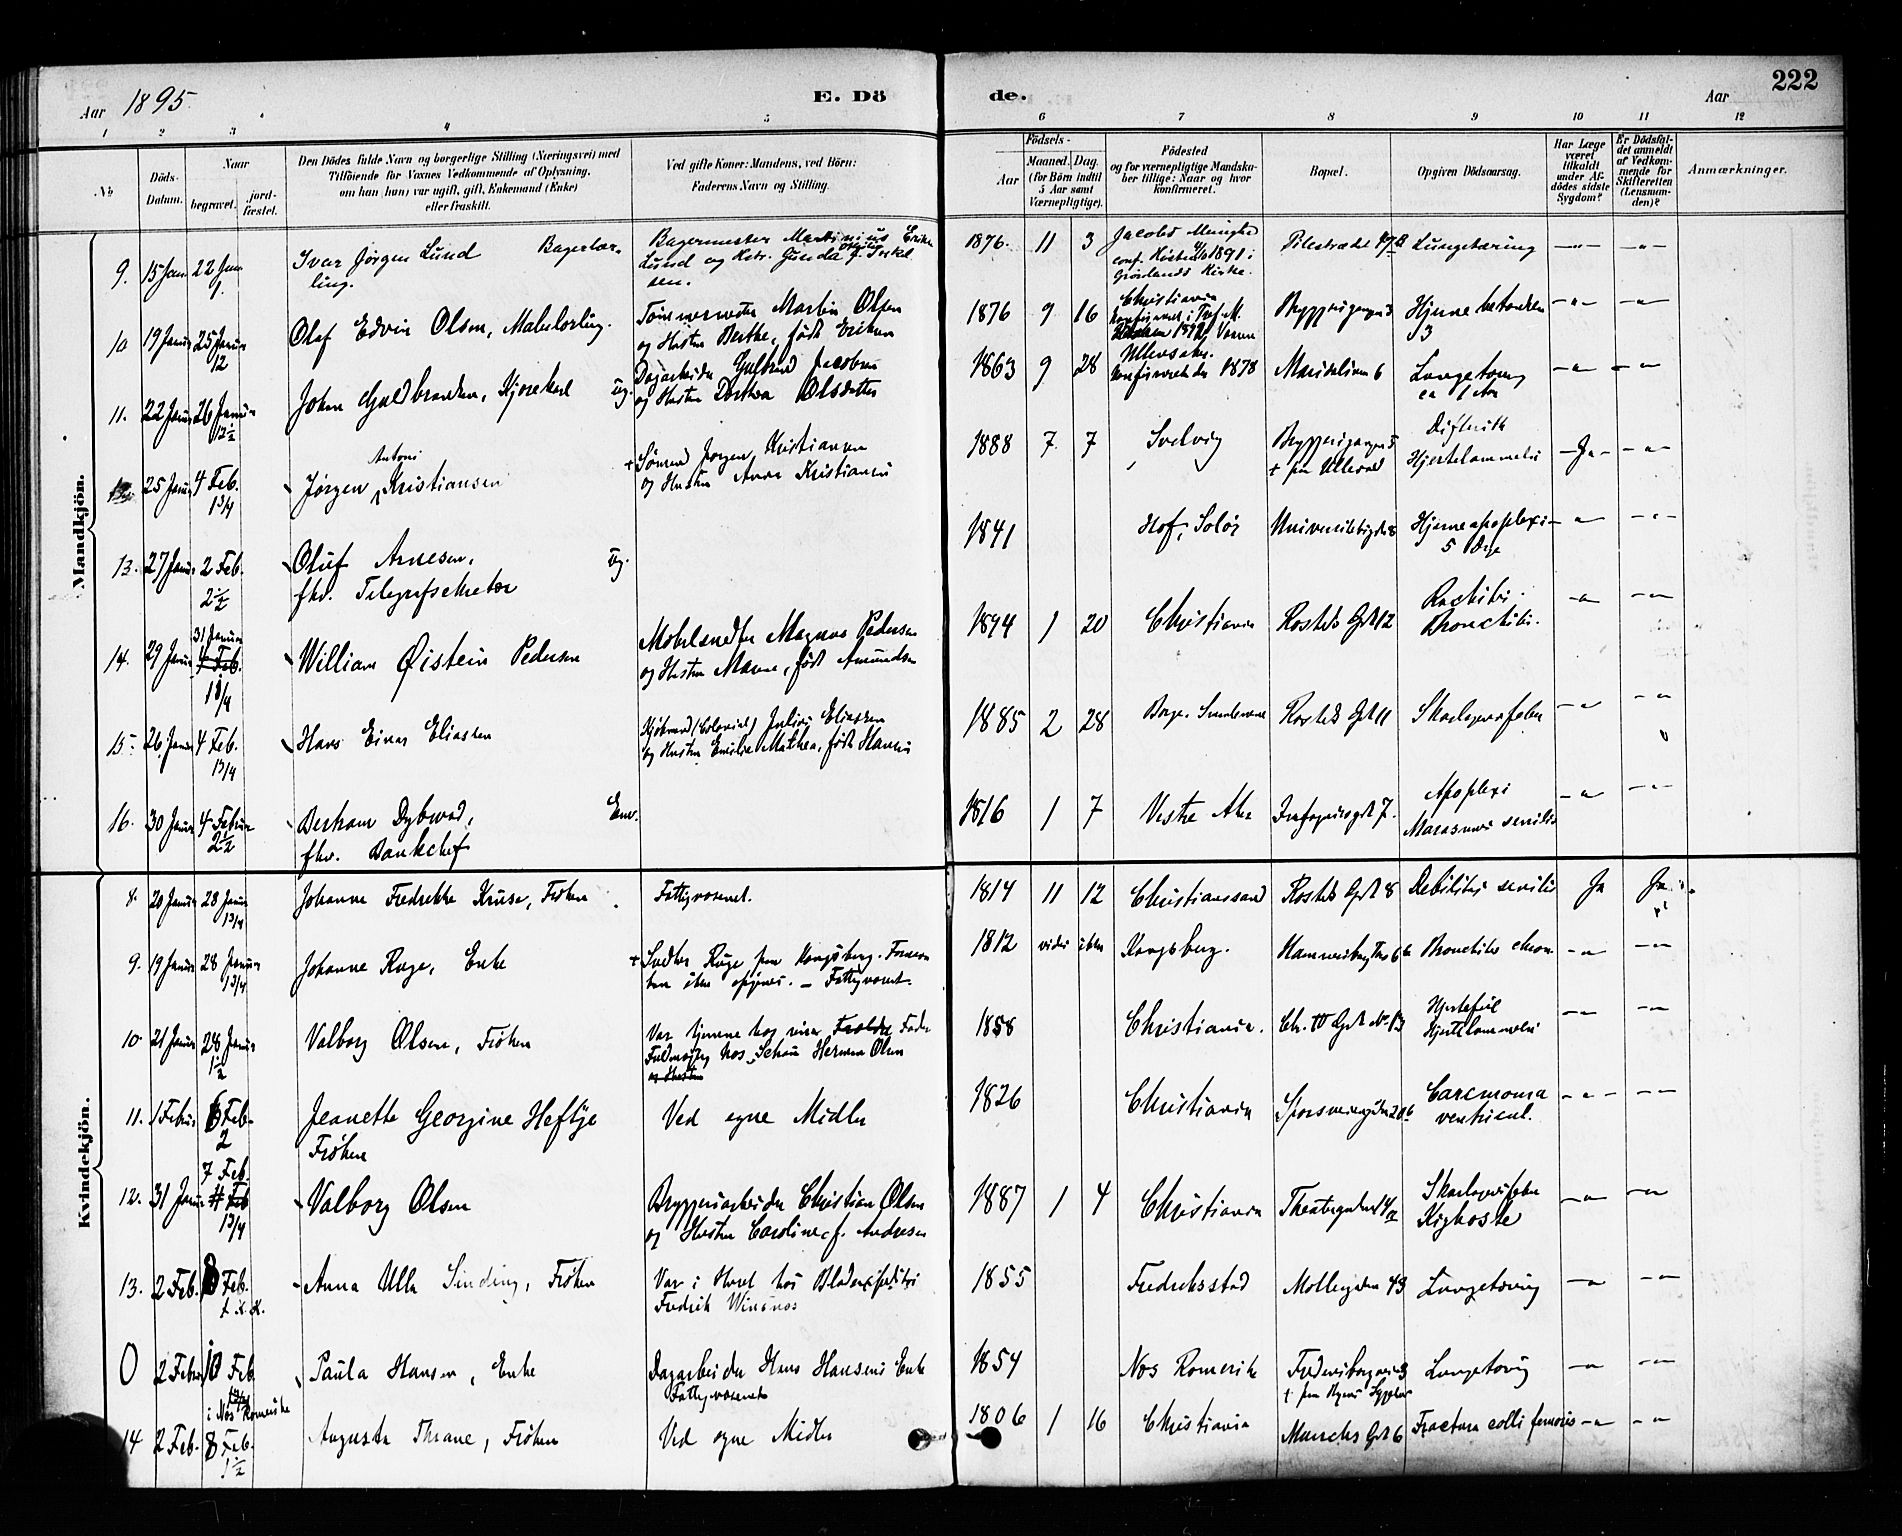 Aar 1895.
E. Dö
de.
Aar
222
1 2 3 4 5 6 7 8 9 10 11 12
No
Döds-Datum.
Naar
begravet.
jord-fæstet.
Den Dödes fulde Navn og borgerlige Stilling (Næringsvei) med
Tilföiende for Voxnes Vedkommende af Oplysning,
om han (hun) var ugift, gift, Enkemand (Enke)
eller fraskilt.
Ved gifte Koner: Mandens, ved Börn:
Faderens Navn og Stilling.
Födsels-
Aar
Maaned. Dag.
(for Börn indtil
5 Aar samt
Værnepligtige).
Födested
og for værnepligtige Mandska-
ber tillige: Naar og hvor
konfirmeret.
Bopæl.
Opgiven Dödsaarsag.
Har Læge
været
tilkaldt
under Af-
dödes sidste
Sygdom?
Er Dödsfal-
det anmeldt
af Vedkom-
mende for
Skifteretten
(Lensman-
den)?
Anmærkninger.
Mandkjön.
9. 15 Jan 22 Jan 1. Ivar Jørgen Lund Bagerlær-
ling.
Bagermester Martinius
Lund og Gunda
sen.
1876. 11 3 Jacobs
conf. 1891 i
Grønlands Kirke.
Pilestrædet 47 Lungetæring -"- -"-
10 19 Januar 25 Januar 12 Olaf Edvin Olsen, Malerlærling.
Tømmermester Martin Olsen
og Hustru Berthe, født Ericksen
1876 9 16 Christiania
Konfirmeret i
1892
Bryggerigangen 3 Hjernebetændelse
-"- -"-
11. 22 Januar 26 Januar 12½ Johan Guldbrandsen, Kjørekarl Ug.
Dagarbeider Gulbrand Jacobsen
og Hustru Dorthea Olsdatter
1863 9 28 Ullensaker.
Konfirmeret der 1878
Maridalsveien 6 Lungetæring
ca 1 Aar
-"- -"-
12. 25 Januar 4 Feb. 1¾ Jørgen Antoni Kristiansen
+ Sømand Jørgen Kristiansen
og Hustru Anna Kristiansen
1888 7 7 Svelvig Bryggerigangen 5
+ paa Ullevaal
Difterit
Hjertelammelse
-Ja- -"-
13. 27 Januar 2 Feb. 2½ Oluf Arnesen, Ug.
fhv. Telegrafsekretær
1841 Hof, Solør Universitetsgden 8 Hjerneapoplexi
5 Dage
-"- -"-
14. 29 Januar 31 Januar 4 Feb. 1¾ William Øistein Pedersen
Møbelsnedker Magnus Pedersen
og Hustru Maren, født Amundsen
1894 1 20 Christiania Rosteds Gd 12 Rachitis.
Bronchitis.
-"- -"-
15. 26 Januar 4 Feb. 1¾ Hans Einar Eliassen
Kjøbmand (Colonial) Julius Eliassen
og Hustru Emilie Mathea, født Hansen
1885 2 28 Borge. Smaalenene Rosteds Gd 11 Skarlagensfeber -"- -"-
16. 30 Januar 4 Februar 2½ Bertram Dybwad, Env.
fhv. Bankchef
1816 1 7 Vestre Aker 7. Apoplexi
Marasmus senilis
-"- -"-
Kvindekjön.
8. 20 Januar 28 Januar 1¾ Johanne Fredrekke Kruse, Frøken
Fattigvæsenet.
1814 11 12 Christianssand Rosteds Gd 8 Debilitas senilis Ja Ja
9. 19 Januar 28 Januar 1¾ Johanne Ruge, Enke
+ Ruge fra Kongsberg.
ikke opgives. - Fattigvæsenet.
1812 vides ikke Kongsberg. Hammersborg Bronchitis chron -"- -"-
10. 21 Januar 28 Januar 1½ Valborg Olsen, Frøken
Var hjemme hos Fader
Fuldmægtig hos Herman Olsen
og Hustru
1858 Christiania. Chr. IV Gd No 13 Hjertefeil
Hjertelammelse
-"- -"-
11. 1 Februar 6 Feb. 2 Jeanette Georgine Heftye
Frøken
Ved egne Midler
1826 Christiania Sporveisgaden 20 b Carcinoma
ventricul.
-"- -"-
12. 31 Januar 7 Feb. 4 Feb 1¾ Valborg Olsen
Bryggeriarbeider Christian Olsen
og Hustru Caroline f. Andresen
1887 1 4 Christiania Theatergaden Skarlagensfeber
Kighoste
-"- -"-
13. 2 Feb. 8 Feb. Anna Ulla Sinding, Frøken
Var i Huset hos Bladexpeditør
Fredrik Winsnes
1855 Fredriksstad Møllergaden 43 Lungetæring -"- -"-
0 2 Februar 10 Feb i Nes Romerike Paula Hansen, Enke
Dagarbeider Hans Hansens Enke
Fattigvæsenet
1854 Nes Romerike Fredensborgveien 3 Lungetæring -"- -"-
14 2 Feb. 8 Feb. 1½ Augusta Thrane, Frøken
Ved egne Midler
1806 1 16 Christiania Munchs Gd 6 Fractura colli femoris -"- -"-